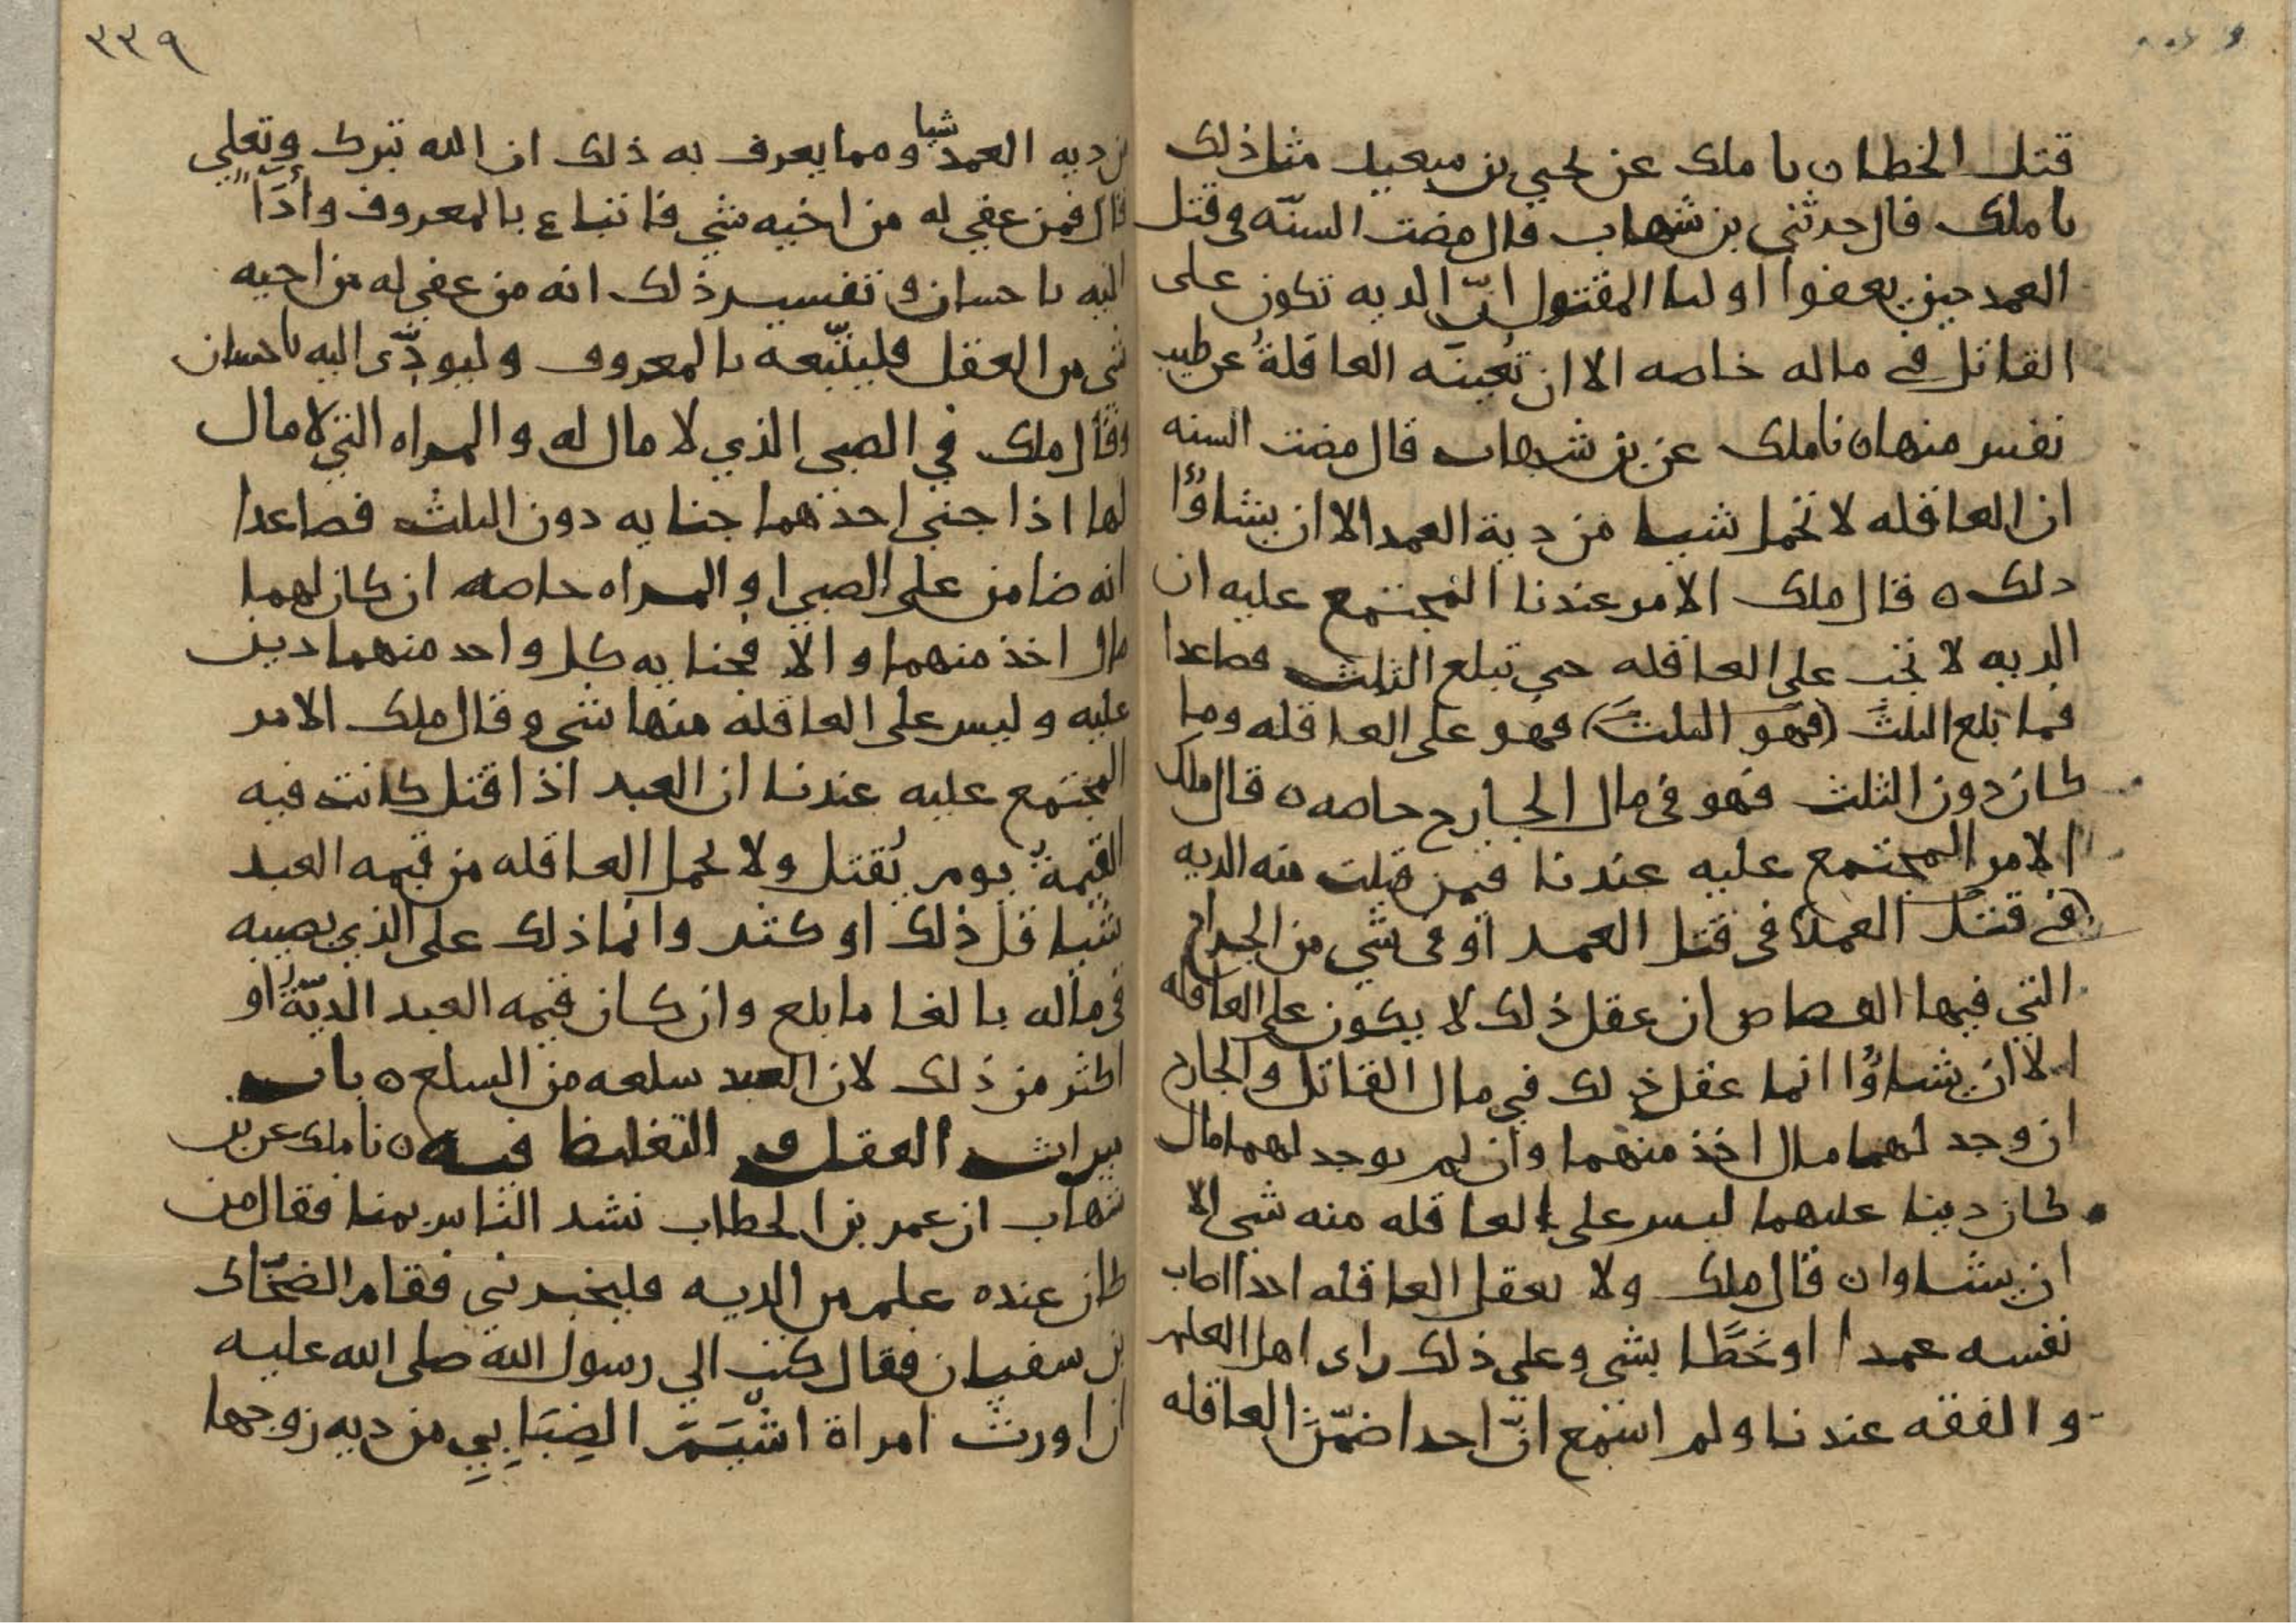 قتل الخطا ٥ نا ملك عن يحيي بن سعيد مثل ذلك
نا ملك قال حدثني بن شهاب قال مضت السنّه في قتل
العمد حين يعفوا اوليا المقتول انّ الديه تكون على
القاتل في ماله خاصه الا ان تُعينَه العاقلةُ عن طيب
نفس منها ٥ نا ملك عن بن شهاب قال مضت السنه
ان العاقله لا تحمل شيا من دية العمد الا ان يشاؤُا
ذلك ٥ قال ملك الامر عندنا المجتمع عليه ان
الديه لا تجب على العاقله حتي تبلغ الثلث فصاعدا
فما بلغ الثلث (فهو الثلث) فهو على العاقله وما
كان دون الثلث فهو في مال الجارح خاصه ٥ قال ملك
الامر المجتمع عليه عندنا فيمن قبلت منه الديه
(في قتل العمد) في قتل العمد او في شي من الجراح
التي فيها القصاص ان عقل ذلك لا يكون على العاقله
الا ان يشاؤُا انما عقل ذلك في مال القاتل والجارح
ان وجد لهما مال اخذ منهما وان لم يوجد لهما مال
كان دينا عليهما ليس على العاقله منه شي الا
ان يشاوا ٥ قال ملك ولا تعقل العاقله احدا اصاب
نفسه عمدا او خَطَّا بشي وعلى ذلك راى اهل العلم
والفقه عندنا ولم اسمع انّ احدا ضمّن العاقله
٣٣٩
من ديه العمد شيا ومما يعرف به ذلك ان الله تبرك وتعلي
قال فمن عفي له من اخيه شي فاتباع بالمعروف وأدَا
اليه باحسان وتفسير ذلك انه من عفي له من اخيه
شي من العقل فليتّبعه بالمعروف وليودّى اليه باحسان
وقال ملك في الصبي الذي لا مال له والمراه التي لا مال
لها اذا جني احدهما جنايه دون الثلث فصاعدا
انه ضامن على الصبي او المراه خاصه ان كان لهما
مال اخذ منهما والا فجنايه كل واحد منهما دين
عليه وليس على العاقله منها شي وقال ملك الامر
المجتمع عليه عندنا ان العبد اذا قتل كانت فيه
القيمةُ يوم يُقتل ولا تحمل العاقله من قيمه العبد
شيا قل ذلك او كثر وانما ذلك على الذي يصيبه
في ماله بالغا ما بلغ وان كان قيمه العبد الديّةُ او
اكثر من ذلك لان العبد سلعه من السلع ٥ باب
ميراث العقل و التغليظ فيه ٥ نا ملك عن بن
شهاب ان عمر بن الخطاب نشد الناس بمنا فقال من
كان عنده علم من الديه فليخبرني فقام الضحّاك
بن سفيان فقال كتب الي رسول الله صلى الله عليه
ان اورث امراة اشْيَمَ الضِبَابِيِ من ديه زوجها